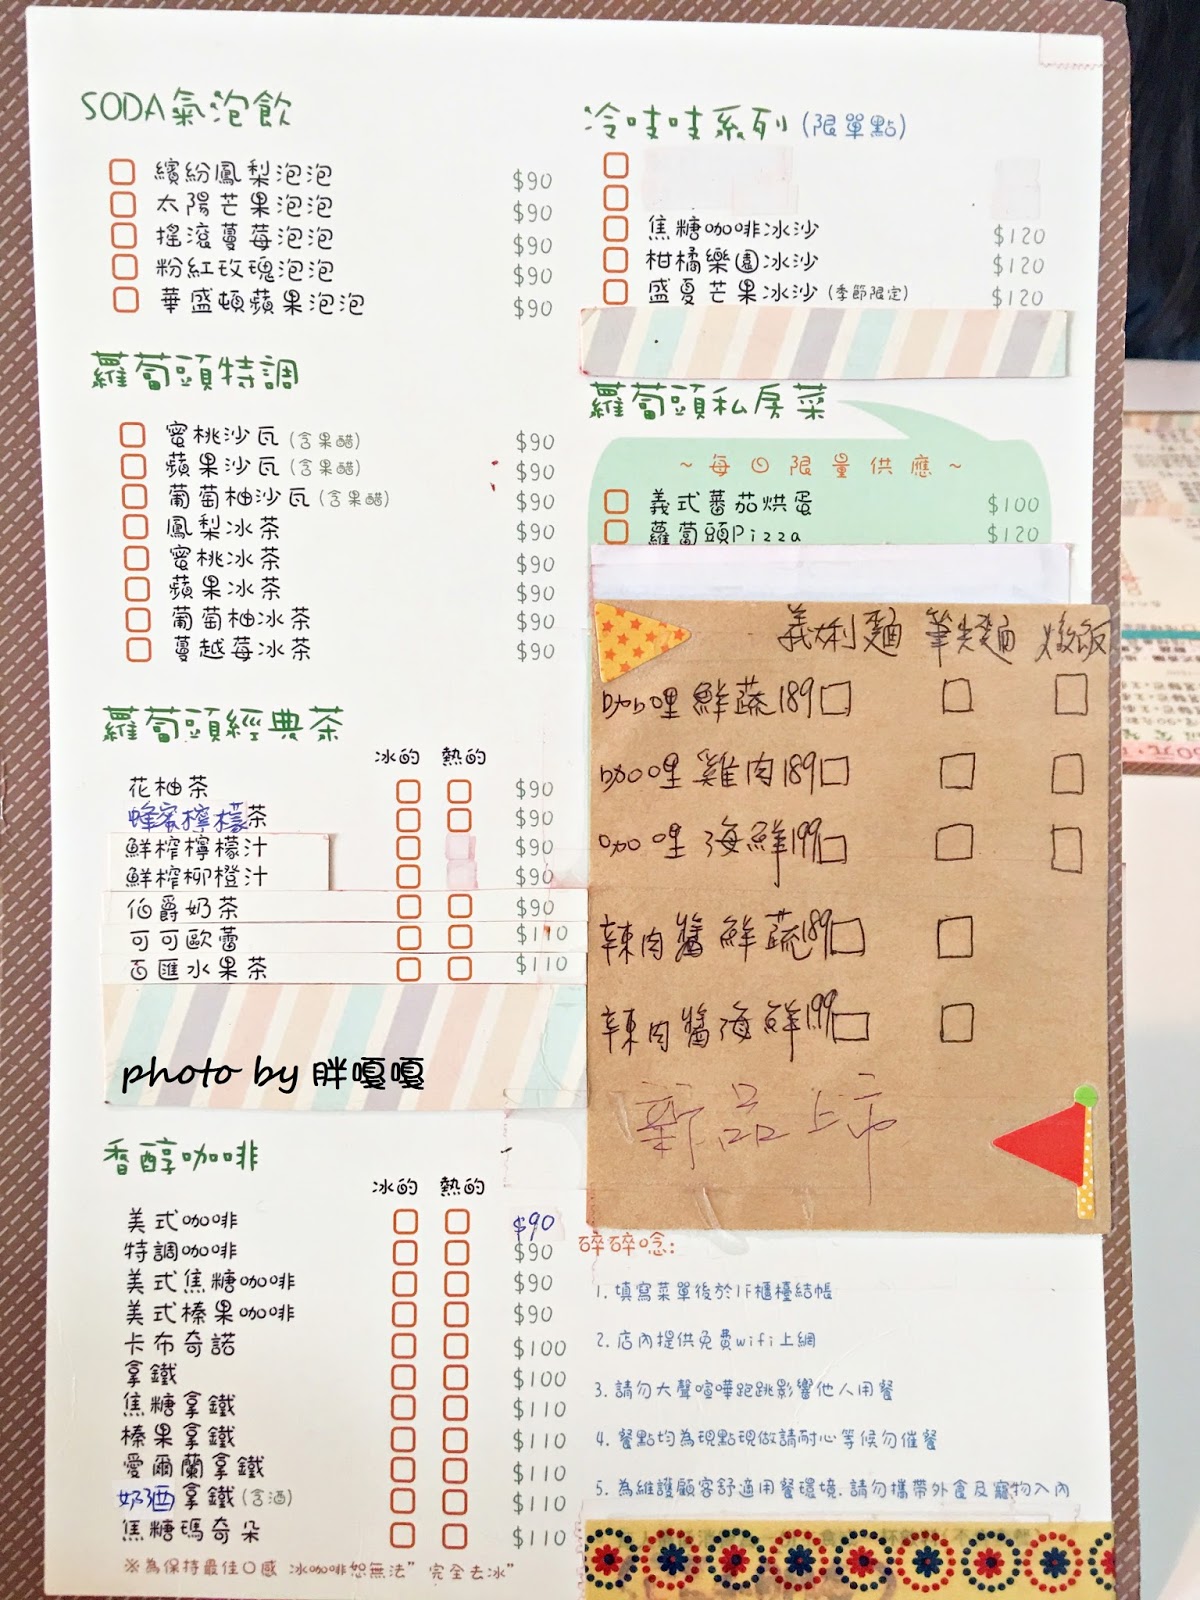 SODA氣泡飲
繽紛鳳梨泡泡 $90
太陽芒果泡泡 $90
搖滾蔓莓泡泡 $90
粉紅玫瑰泡泡 $90
華盛頓蘋果泡泡 $90
蘿蔔頭特調
蜜桃沙瓦(含果醋) $90
蘋果沙瓦(含果醋) $90
葡萄柚沙瓦(含果醋) $90
鳳梨冰茶 $90
蜜桃冰茶 $90
蘋果冰茶 $90
葡萄柚冰茶 $90
蔓越莓冰茶 $90
蘿蔔頭經典茶
冰的 熱的
花柚茶 $90
蜂蜜檸檬茶 $90
鮮榨檸檬汁 $90
鮮榨柳橙汁 $90
伯爵奶茶 $90
可可歐蕾 $110
百匯水果茶 $110
photo by 胖嘎嘎
香醇咖啡
冰的 熱的
美式咖啡 $90
特調咖啡 $90
美式焦糖咖啡 $90
美式榛果咖啡 $90
卡布奇諾 $100
拿鐵 $100
焦糖拿鐵 $110
榛果拿鐵 $110
愛爾蘭拿鐵 $110
奶酒拿鐵(含酒) $110
焦糖瑪奇朵 $110
※為保持最佳口感 冰咖啡恕無法"完全去冰"
冷哇哇系列(限單點)
焦糖咖啡冰沙 $120
柑橘樂園冰沙 $120
盛夏芒果冰沙(季節限定) $120
蘿蔔頭私房菜
~每日限量供應~
義式蕃茄烘蛋 $100
蘿蔔頭Pizza $120
義大利麵 筆尖麵 燉飯
咖哩鮮蔬189
咖哩雞肉189
咖哩海鮮199
辣肉醬鮮蔬189
辣肉醬海鮮199
新品上市
碎碎唸:
1.填寫菜單後於1F櫃檯結帳
2.店內提供免費wifi上網
3.請勿大聲喧嘩跑跳影響他人用餐
4.餐點均為現點現做請耐心等候勿催餐
5.為維護顧客舒適用餐環境.請勿攜帶外食及寵物入內